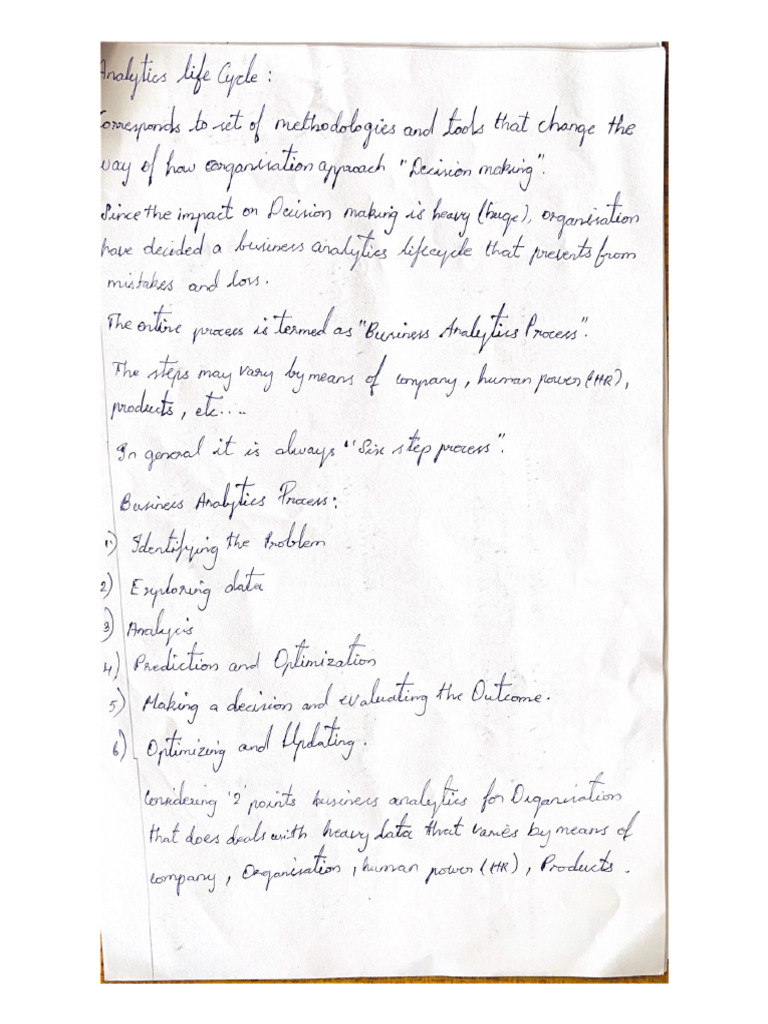 Analytics life Cycle :
Corresponds to set of methodologies and tools that change the
way of how organisation approach "Decision making".
Since the impact on Decision making is heavy (huge), organisation
have decided a business analytics lifecycle that prevents from
mistakes and loss.
The entire process is termed as "Business Analytics Process".
The steps may vary by means of company, human power (HR),
products, etc....
In general it is always "Six step process".
Business Analytics Process:
1) Identifying the Problem
2) Exploring data
3) Analysis
4) Prediction and Optimization
5) Making a decision and evaluating the Outcome.
6) Optimizing and Updating.
Considering '2' points business analytics for Organisation
that does deals with heavy data that varies by means of
company, Organisation, human power (HR), Products.